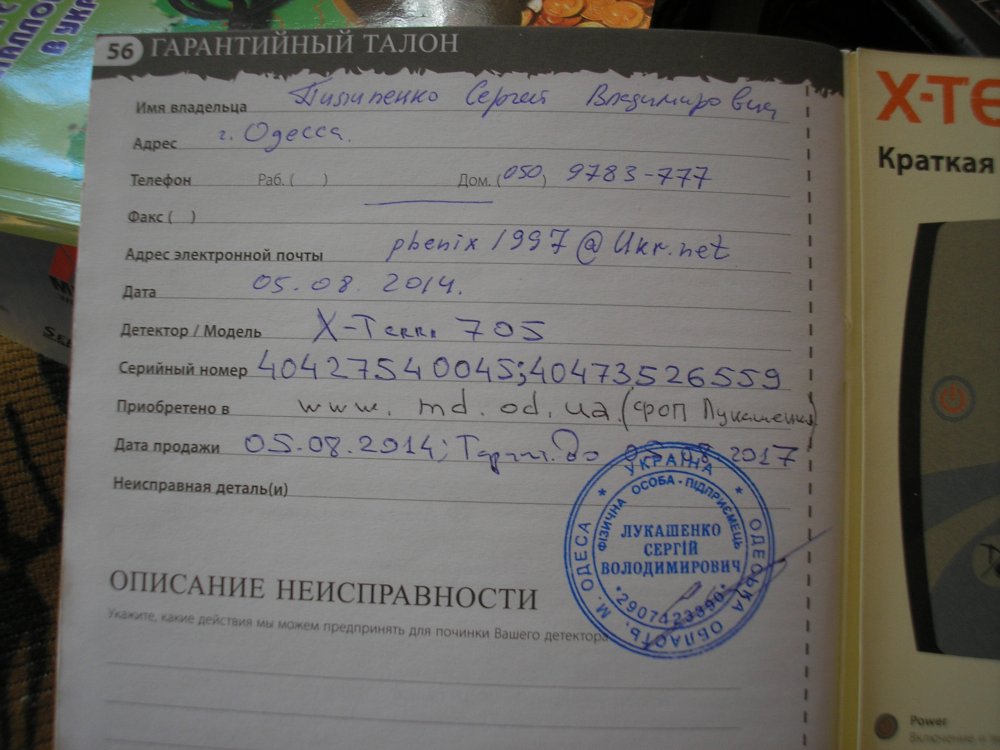 В УКРА
56 ГАРАНТИЙНЫЙ ТАЛОН
Имя владельца Пилипенко Сергей Владимирович
Адрес г. Одесса.
Телефон Раб. ( ) Дом. (050) 9783-777
Факс ( )
Адрес электронной почты phenix1997@Ukr.net
Дата 05.08.2014.
Детектор / Модель X-Terra 705
Серийный номер 40427540045;40473526559
Приобретено в www.md.od.ua (ФОП Лукашенко)
Дата продажи 05.08.2014; Гарант. до 05.08.2017
Неисправная деталь(и)
УКРАЇНА * ОДЕСЬКА ОБЛАСТЬ, М. ОДЕСА *
ФІЗИЧНА ОСОБА-ПІДПРИЄМЕЦЬ
ЛУКАШЕНКО
СЕРГІЙ
ВОЛОДИМИРОВИЧ
ОПИСАНИЕ НЕИСПРАВНОСТИ
Укажите, какие действия мы можем предпринять для починки Вашего детектора
X-TE
Краткая
Power
Включение и